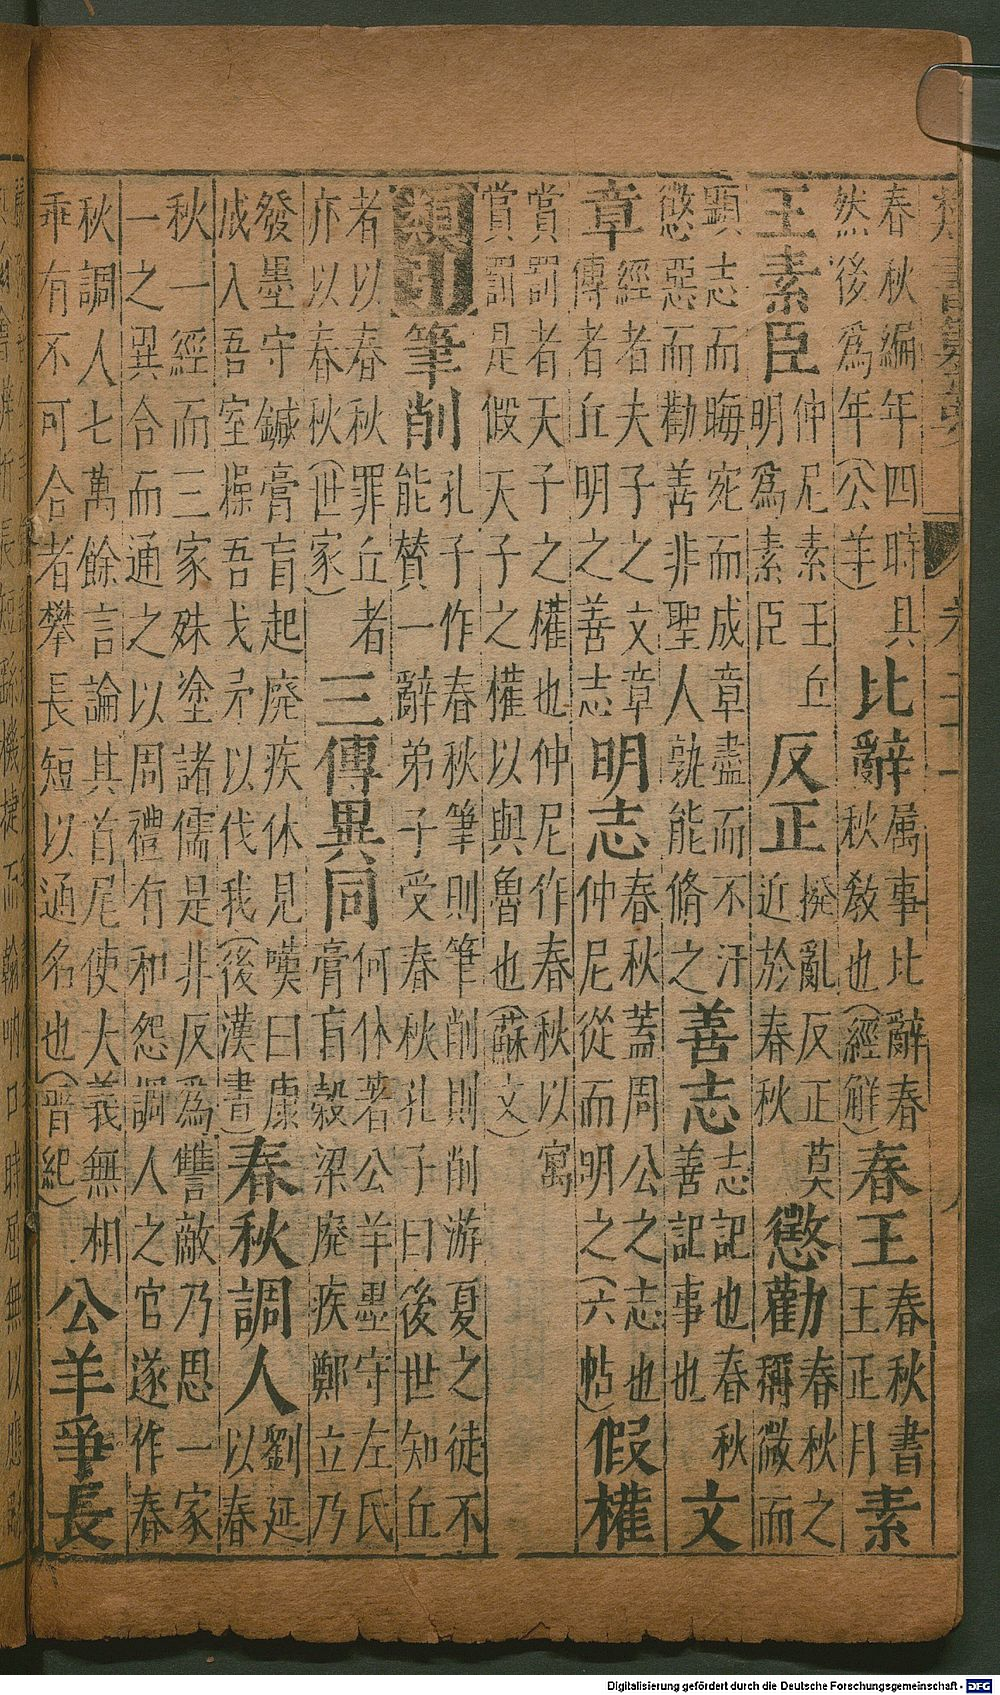 春秋編年四時具然後爲年(公羊)比辭属事比辭春秋敎也(經觧)春王春秋書王正月素
王素臣仲尼素王丘明爲素臣反正撥亂反正莫近於春秋懲勸春秋之稱微而
顯志而晦宛而成章盡而不汙懲惡而勸善非聖人孰能脩之善志志記也春秋善記事也文
章經者夫子之文章傳者丘明之善志明志春秋蓋周公之志也仲尼從而明之(六帖)假權
賞罰者天子之權也仲尼作春秋以寓賞罰是假天子之權以與魯也(蘇文)
類筆削孔子作春秋筆則筆削則削游夏之徒不能賛一辭弟子受春秋孔子曰後世知丘
者以春秋罪丘者亦以春秋(世家)三傳異同何休著公羊墨守左氏膏肓穀梁廢疾鄭立乃
發墨守鍼膏肓起廢疾休見嘆曰康成入吾室操吾戈矛以伐我(後漢書)春秋調人劉延以春
秋一經而三家殊塗諸儒是非反爲讐敵乃思一家一之異合而通之以周禮有和怨調人之官遂作春
秋調人七萬餘言論其首尾使大義無相乖有不可合者舉長短以通名也(晋紀)公羊爭長
Digitalisierung gefördert durch die Deutsche Forschungsgemeinschaft - DFG